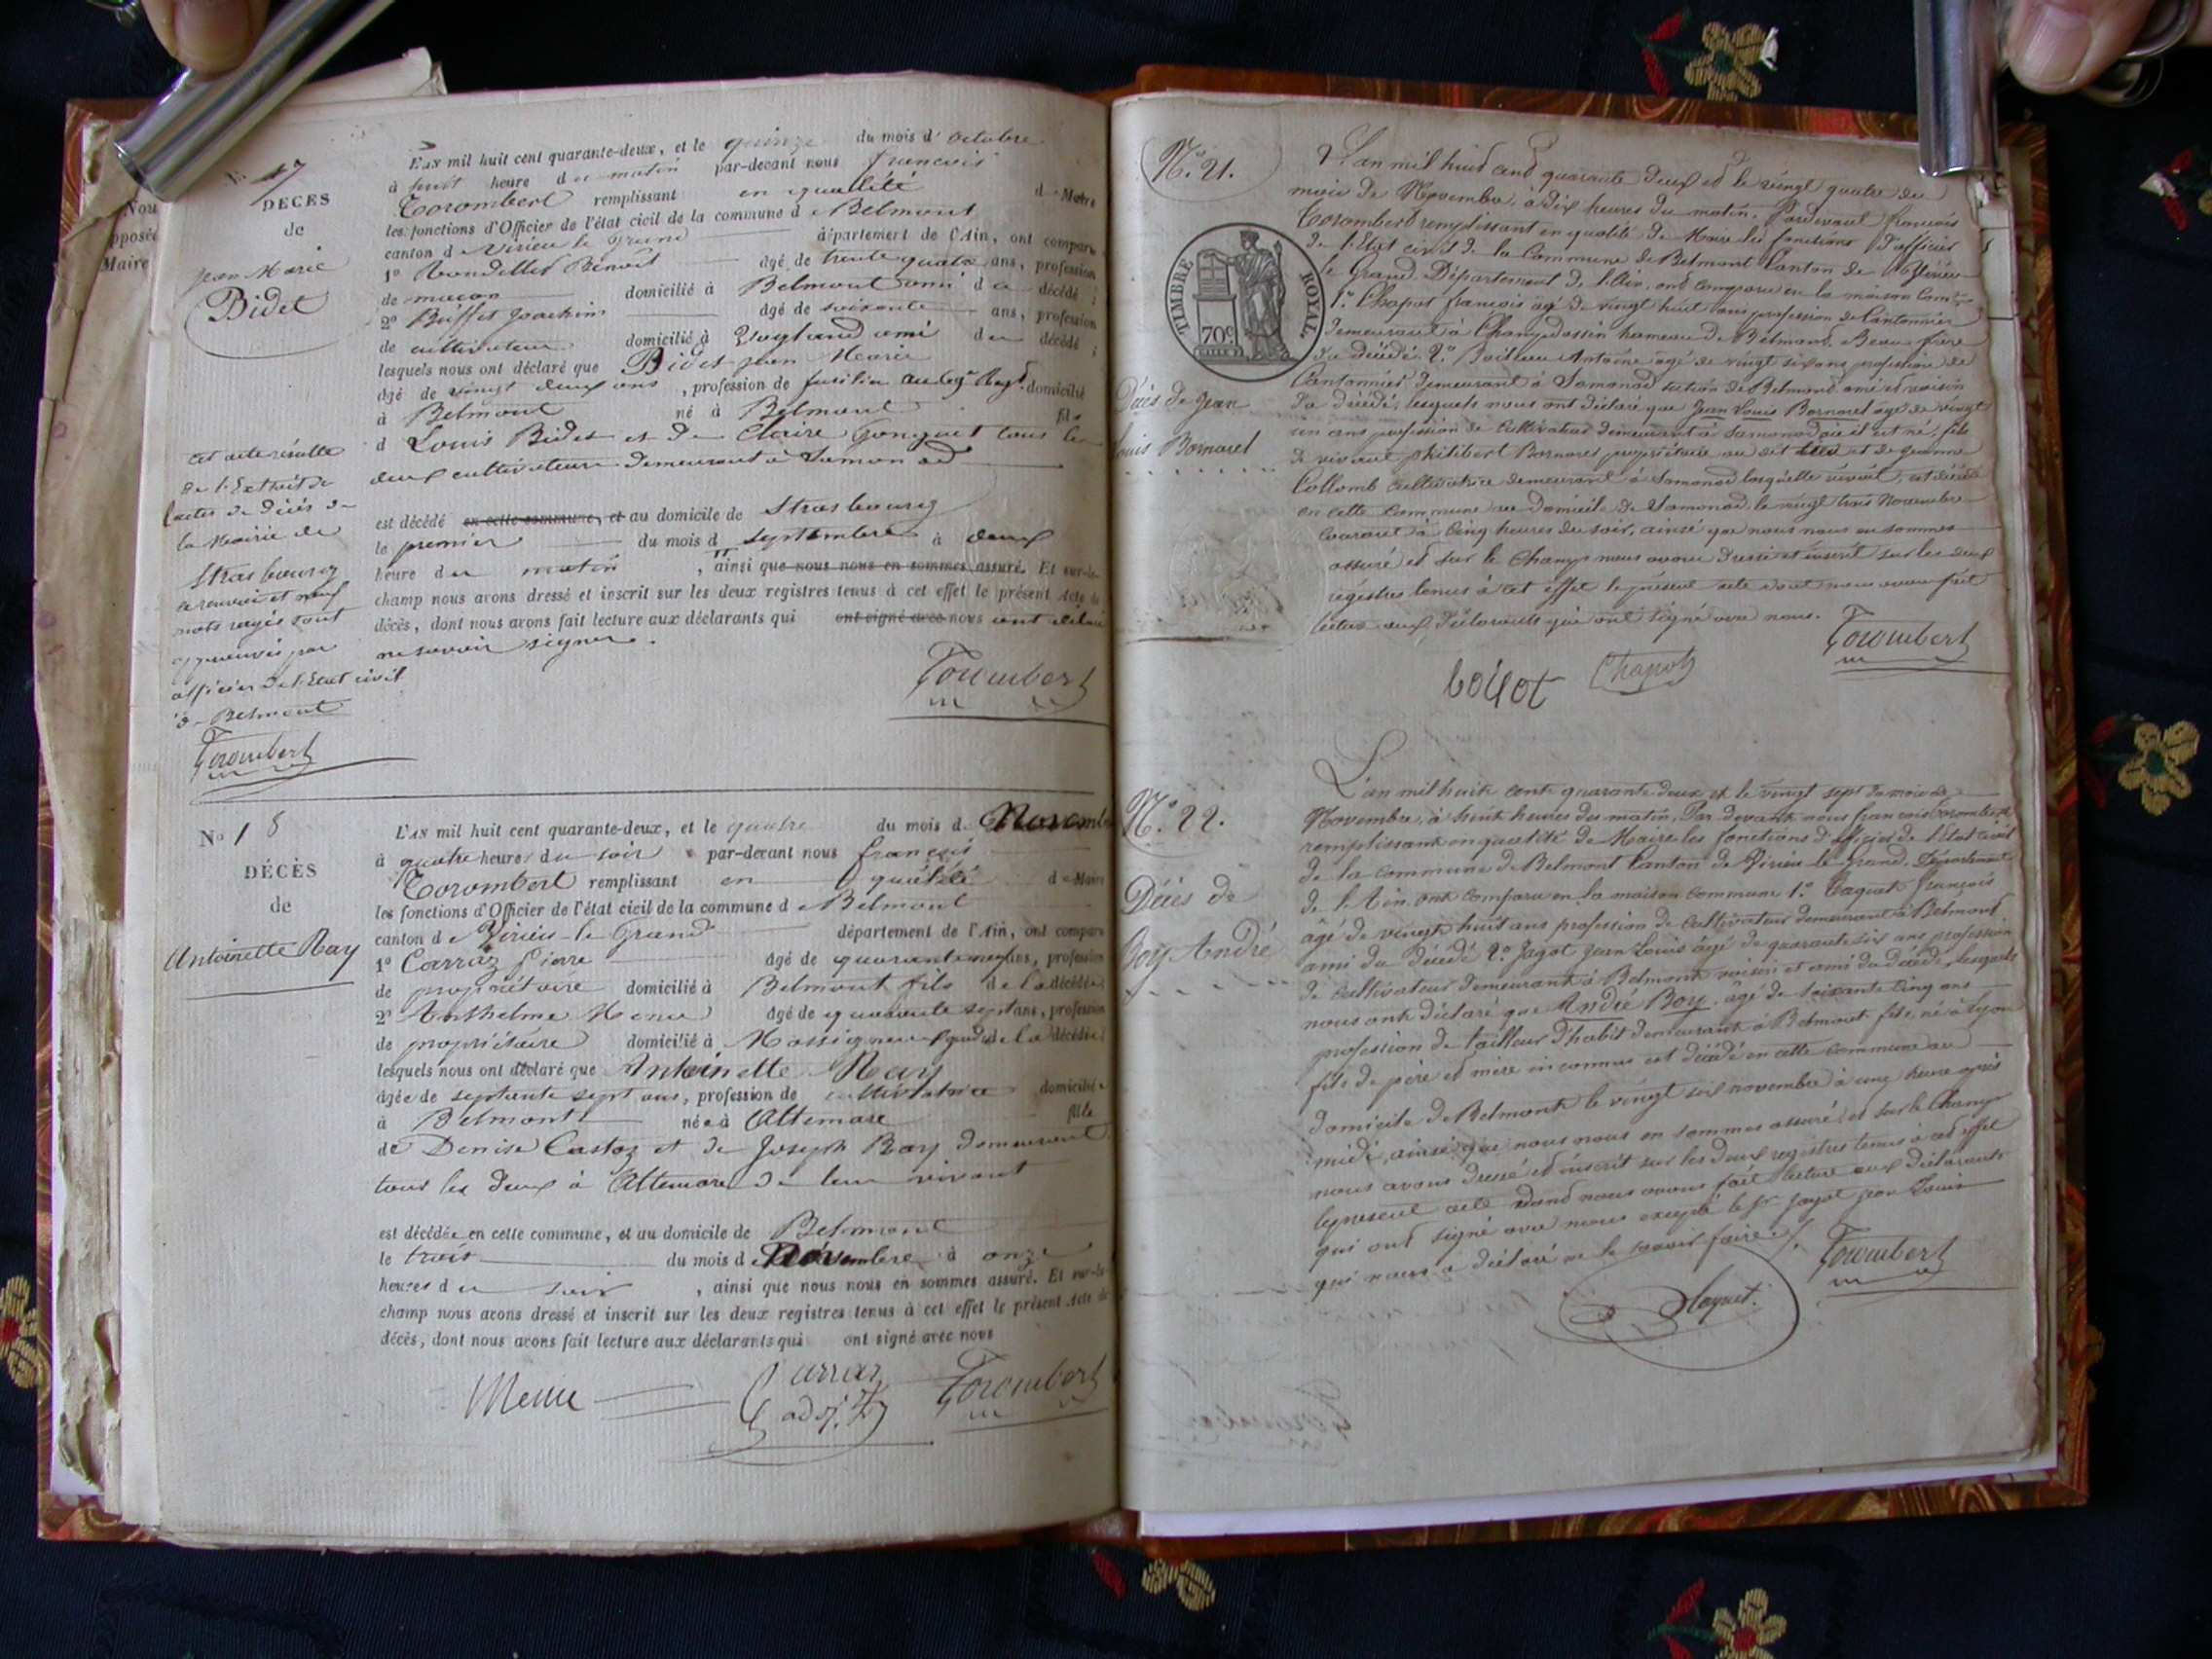 Nou
pposée
Maire
No 17
DÉCÈS
de
Jean Marie
Bidet
cet acte résulte
de l'Extrait de
l'acte de décès de
la Mairie de
Strasbourg
le renvoi et neuf
mots rayés sont
approuvés par
officier de l'Etat civil
de Belmont
Torombert
L'AN mil huit cent quarante-deux, et le quinze du mois d'octobre
à huit heure du matin par-devant nous francois
Torombert remplissant en qualité de Maire
les fonctions d'Officier de l'état civil de la commune de Belmont
canton de Virieu le Grand département de l'Ain, ont comparu
1o Benoit âgé de trente quatre ans, profession
de maçon domicilié à Belmont ami du décédé ;
2o Buffet Joachim âgé de soixante ans, profession
de cultivateur domicilié à ami du décédé ;
lesquels nous ont déclaré que Bidet jean Marie
âgé de vingt deux ans, profession de fusilier au Regt. domicilié
à Belmont né à Belmont fils
d Louis Bidet et de Claire tous les
deux cultivateurs demeurant à Samonod
est décédé en cette commune, et au domicile de Strasbourg
le premier du mois d septembre à deux
heure du matin, ainsi que nous nous en sommes assuré. Et sur-le-
champ nous avons dressé et inscrit sur les deux registres tenus à cet effet le présent Acte de
décès, dont nous avons fait lecture aux déclarants qui ont signé avec nous ont déclaré
ne savoir signer.
Torombert
No 18
DÉCÈS
de
Antoinette Ray
L'AN mil huit cent quarante-deux, et le quatre du mois de Novembre
à quatre heures du soir par-devant nous françois
Torombert remplissant en qualité de Maire
les fonctions d'Officier de l'état civil de la commune de Belmont
canton de Virieu-le-Grand département de l'Ain, ont comparu
1o Carraz Pierre âgé de ans, profession
de propriétaire domicilié à Belmont fils de la décédée
2o Anthelme Menu âgé de quarante sept ans, profession
de propriétaire domicilié à Massignieu de la décédée
lesquels nous ont déclaré que Antoinette Ray
âgée de septante sept ans, profession de cultivatrice domiciliée
à Belmont née à Altemare fille
de Denise Castaz et de Joseph Ray demeurant
tous les deux à Altemare de leur vivant
est décédée en cette commune, et au domicile de Belmont
le trois du mois de Novembre à onze
heures du soir, ainsi que nous nous en sommes assuré. Et sur-le-
champ nous avons dressé et inscrit sur les deux registres tenus à cet effet le présent Acte de
décès, dont nous avons fait lecture aux déclarants qui ont signé avec nous
Menu Carraz Torombert
adj.t
No. 21.
TIMBRE ROYAL
70c
Décès de Jean
Louis Bornarel
L'an mil huit cent quarante deux et le vingt quatre du
mois de Novembre, à dix heures du matin. Pardevant françois
Torombert remplissant en qualité de Maire les fonctions d'officier
de l'Etat civil de la Commune de Belmont Canton de Virieu
le Grand Département de l'Ain, ont comparu en la maison Comne
1o. Chapot françois âgé de vingt huit ans profession de Cantonnier
demeurant à Champdossin hameau de Belmont, Beau frère
du décédé. 2o. Antoine âgé de vingt six ans profession de
Cantonnier demeurant à Samonod section de Belmont ami et voisin
du décédé, lesquels nous ont déclaré que Jean Louis Bornarel âgé de vingt
un ans profession de Cultivateur demeurant à Samonod où il est né, fils
de vivant Philibert Bornarel propriétaire au dit lieu et de jeanne
Collomb cultivatrice demeurant à Samonod lesquelle vivent, est décédé
en cette commune au Domicile de Samonod le vingt trois Novembre
courant à cinq heures du soir, ainsi que nous nous en sommes
assuré et sur le Champ nous avons dressé et inscrit sur les deux
régistres tenus à cet effet le présent acte dont nous avons fait
lecture aux Déclarants qui ont signé avec nous.
Chapot Torombert
No. 22.
Décès de
Boy André
L'an mil huit cent quarante deux et le vingt sept du mois de
Novembre, à huit heures du matin, Par devant nous francois Torombert
remplissant en qualité de Maire les fonctions d'officier de l'Etat civil
de la commune de Belmont Canton de Virieu le Grand, Département
de l'Ain, ont comparu en la maison commune 1o. Taquet François
âgé de vingt huit ans profession de Cultivateur demeurant à Belmont,
ami du décédé 2o. Jagot Jean Louis âgé de quarante six ans profession
de Cultivateur demeurant à Belmont voisin et ami du Décédé, lesquels
nous ont déclaré que André Boy, âgé de soixante cinq ans
profession de tailleur d'habit demeurant à Belmont fils, né à Lyon
fils de père et mère inconnus est décédé en cette commune au
domicile de Belmont le vingt six novembre à une heure après
midi, ainsi que nous nous en sommes assuré et sur le Champ
nous avons dressé et inscrit sur les deux registres tenus à cet effet
le présent acte dont nous avons fait lecture aux déclarants
qui ont signé avec nous excepté le sr. Jagot jean Louis
qui nous a déclaré ne le savoir faire.
Taquet. Torombert